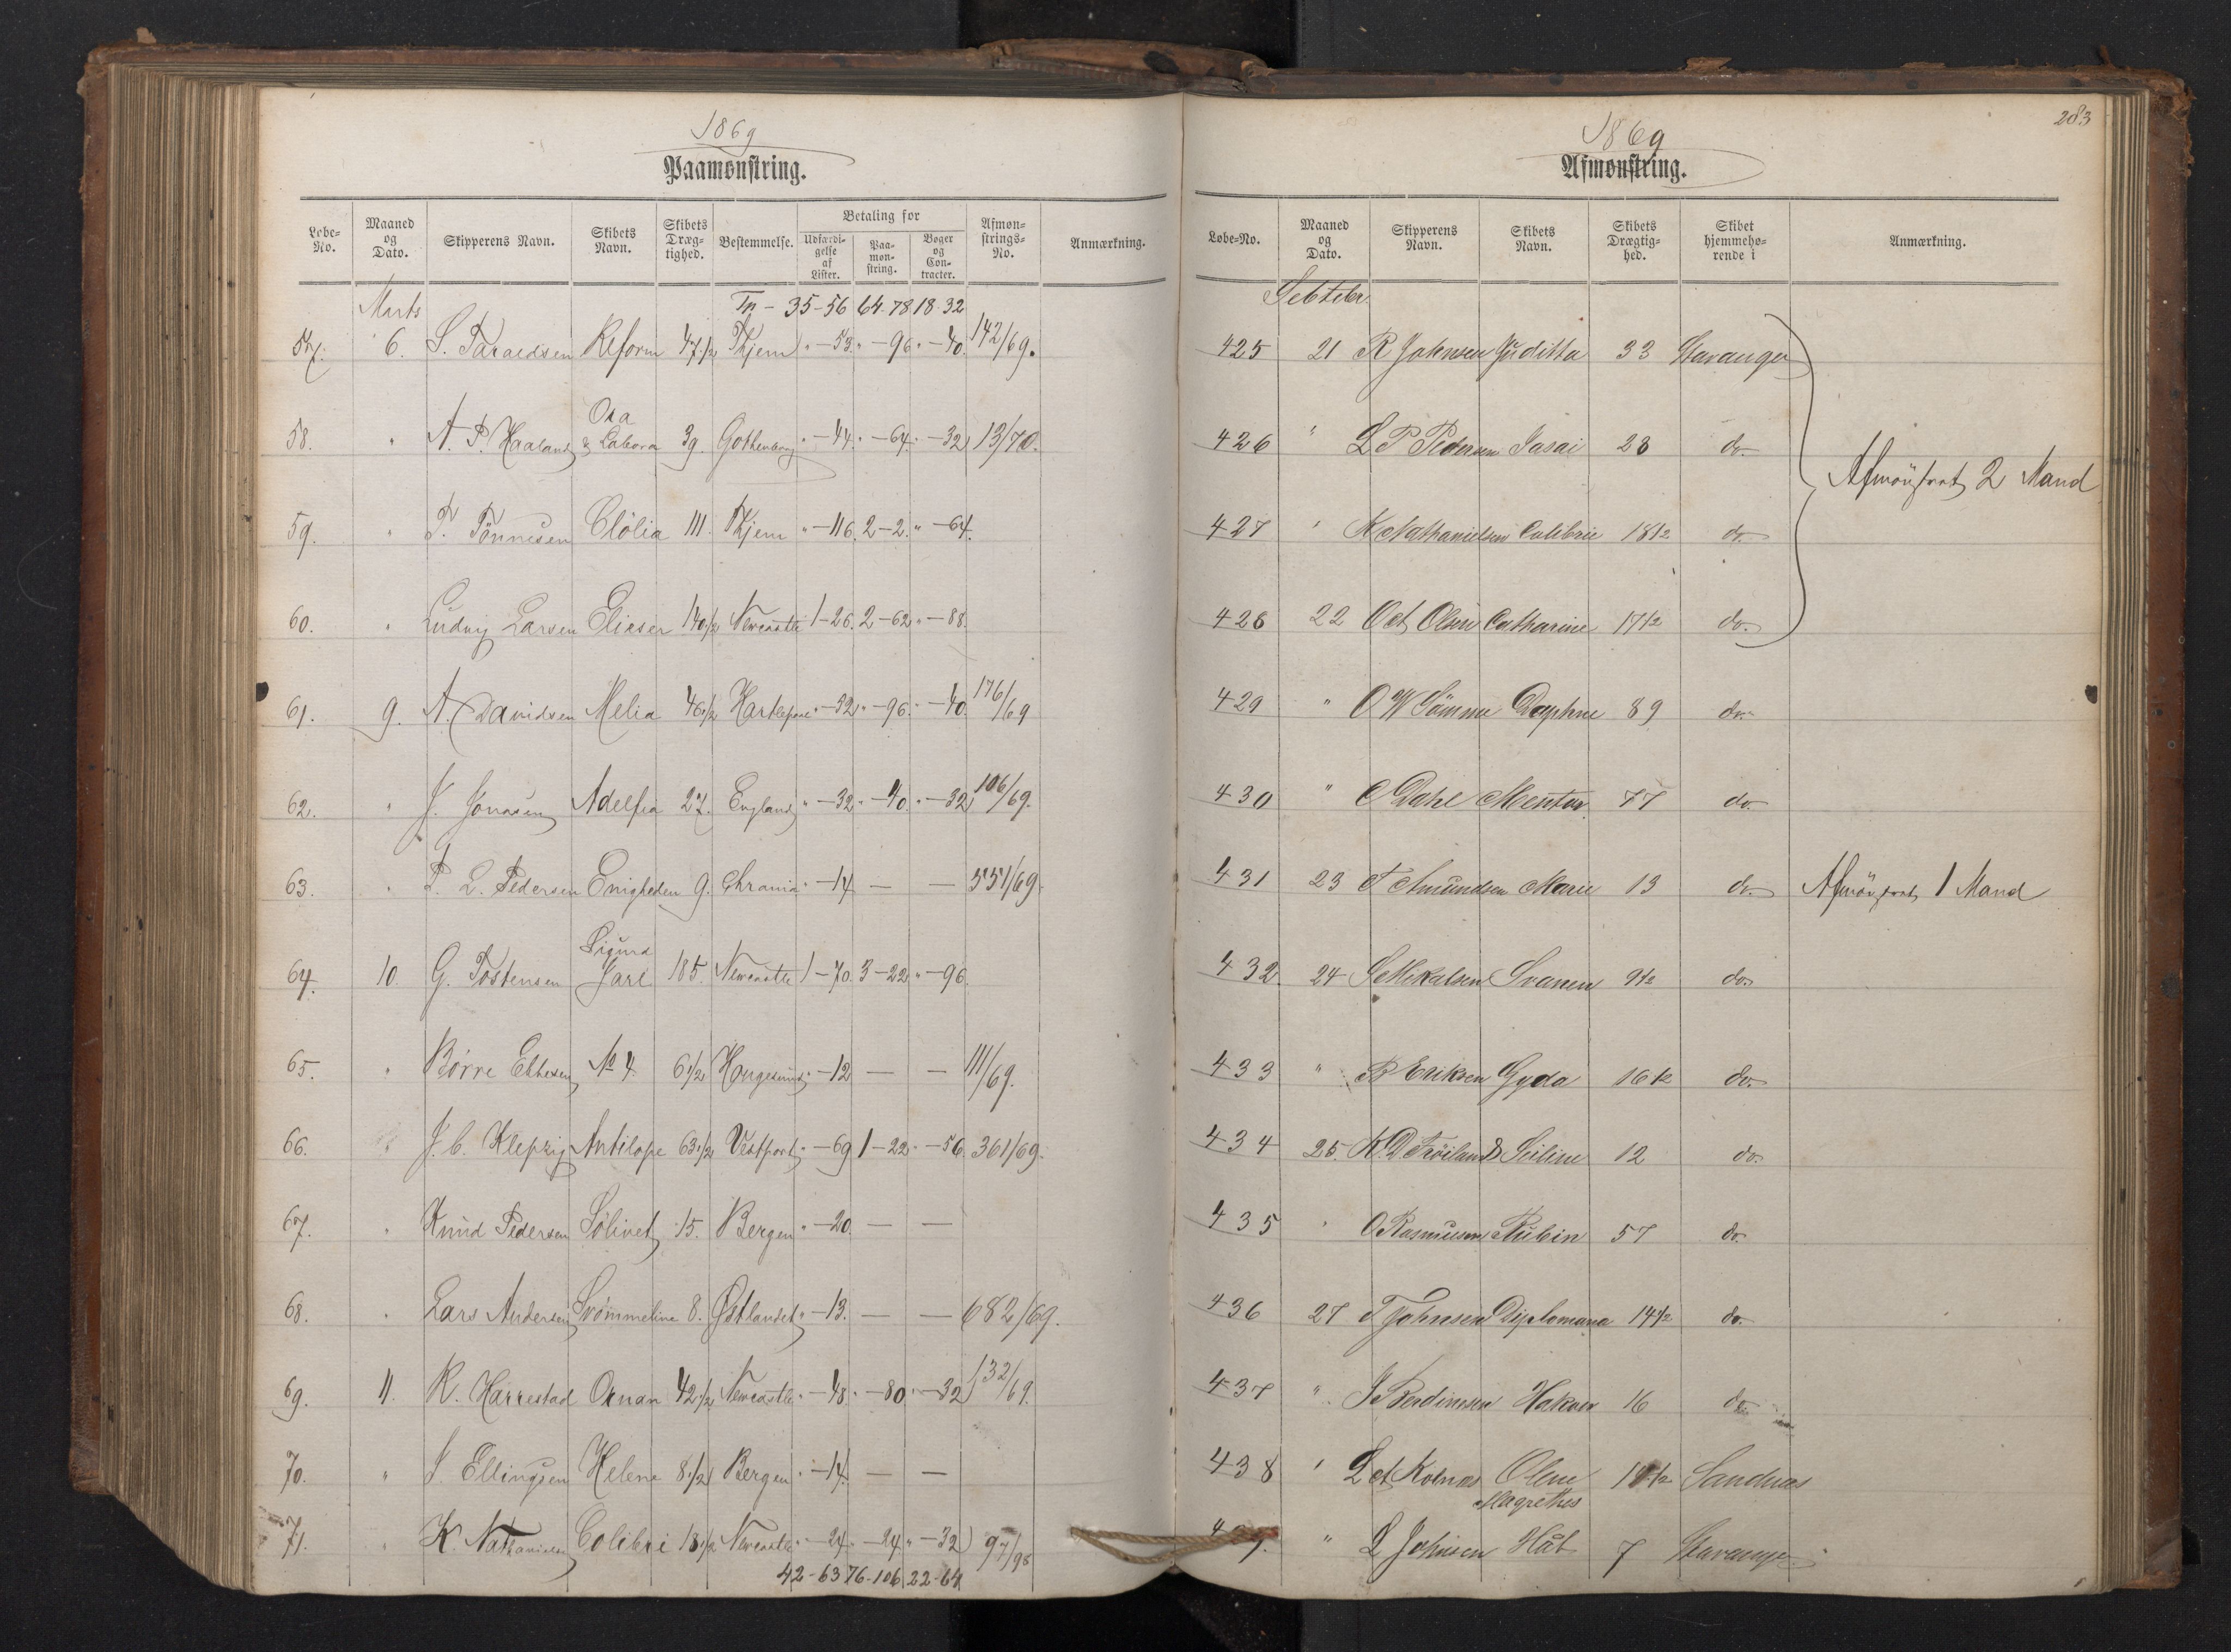 1869
Paamønstring.
Løbe-No. Maaned og Dato. Skipperens Navn. Skibets Navn. Skibets Dræg-tighed. Bestemmelse. Betaling for Udfærdi-gelse af Lister. Paa-møn-string. Bøger og Con-tracter. Afmøn-strings-No. Anmærkning.
Marts Tn - 35-56 64-78 18-32
57. 6. S. Taraldsen Reform 47 1/2 Thjem " -53. " -96 " -40. 142/69.
58. " A. P. Haaland Ora & Labora 39. Gothenborg " -44. " -64. " -32 13/70.
59. " T. Tönnesen Clölia 111. Thjem " -116. 2-2. " -64.
60. " Ludvig Larsen Elieser 140 1/2 Newcastle 1-26. 2-62 " -88.
61. 9. A. Davidsen Melia 46 1/2 Hartlepool " -32 " -96. " -40. 176/69
62. " J. Jonasen Adelfia 27. England " -32 " -40. " -32 106/69.
63. " P. L. Pedersen Enigheden 9. Chrania " -14 — — 551/69.
64. 10. G. Tostensen Sigurd Jarl 185. Newcastle 1-70. 3-22 " -96.
65. " Børre No 4. 6 1/2 Haugesund " -12 — — 111/69.
66. " J. C. Kleprig Antilope 63 1/2 Vestport " -69 1-22 " -56. 361/69.
67. " Knud Pedersen Sølivet 15. Bergen " -20. — —
68. " Lars Andersen Svømmeline 8. Østlandet " -13. — — 682/69.
69. 11. R. Harrestad Ornan 42 1/2 Newcastle " -48. " -80 " -32 132/69.
70. " J. Ellingsen Helene 8 1/2 Bergen " -14. — —
71. " K. Nathanielsen Colibri 18 1/2 Newcastle " -24. " -24 " -32 97/98
42-63 76-106 22-64
283
1869
Afmønstring.
Løbe-No. Maaned og Dato. Skipperens Navn. Skibets Navn. Skibets Drægtig-hed. Skibet hjemmehø-rende i Anmærkning.
Sebtebr.
425 21 R Johnsen Juditta 33 Stavanger
426 " L P Pedersen Jasai 28 do.
Afmönstrat 2 Mand
427 " K Nathanielsen Colibrie 18 1/2 do.
428 22 Oct Olsen Catharine 17 1/2 do.
429 " O W Sömme Daphne 89 do.
430 " C Dahl Mentor 77 do.
431 23 T Amundsen Marie 13 do. Afmönstrat 1 Mand
432. 24 S Mikalsen Svanen 9 1/2 do.
433 " B Eriksen Gyda 16 1/2 do.
434 25. K. D Fröiland Seiline 12 do.
435 " O Rasmusen Rubin 57 do.
436 27 T Johnsen Diplomana 14 1/2 do.
437 " J Berdinesen Hakon 16 do.
438 " L A Kolnes Olene Magrethes 18 1/2 Sandnes
9. " L Johnsen Håb 7 Stavanger